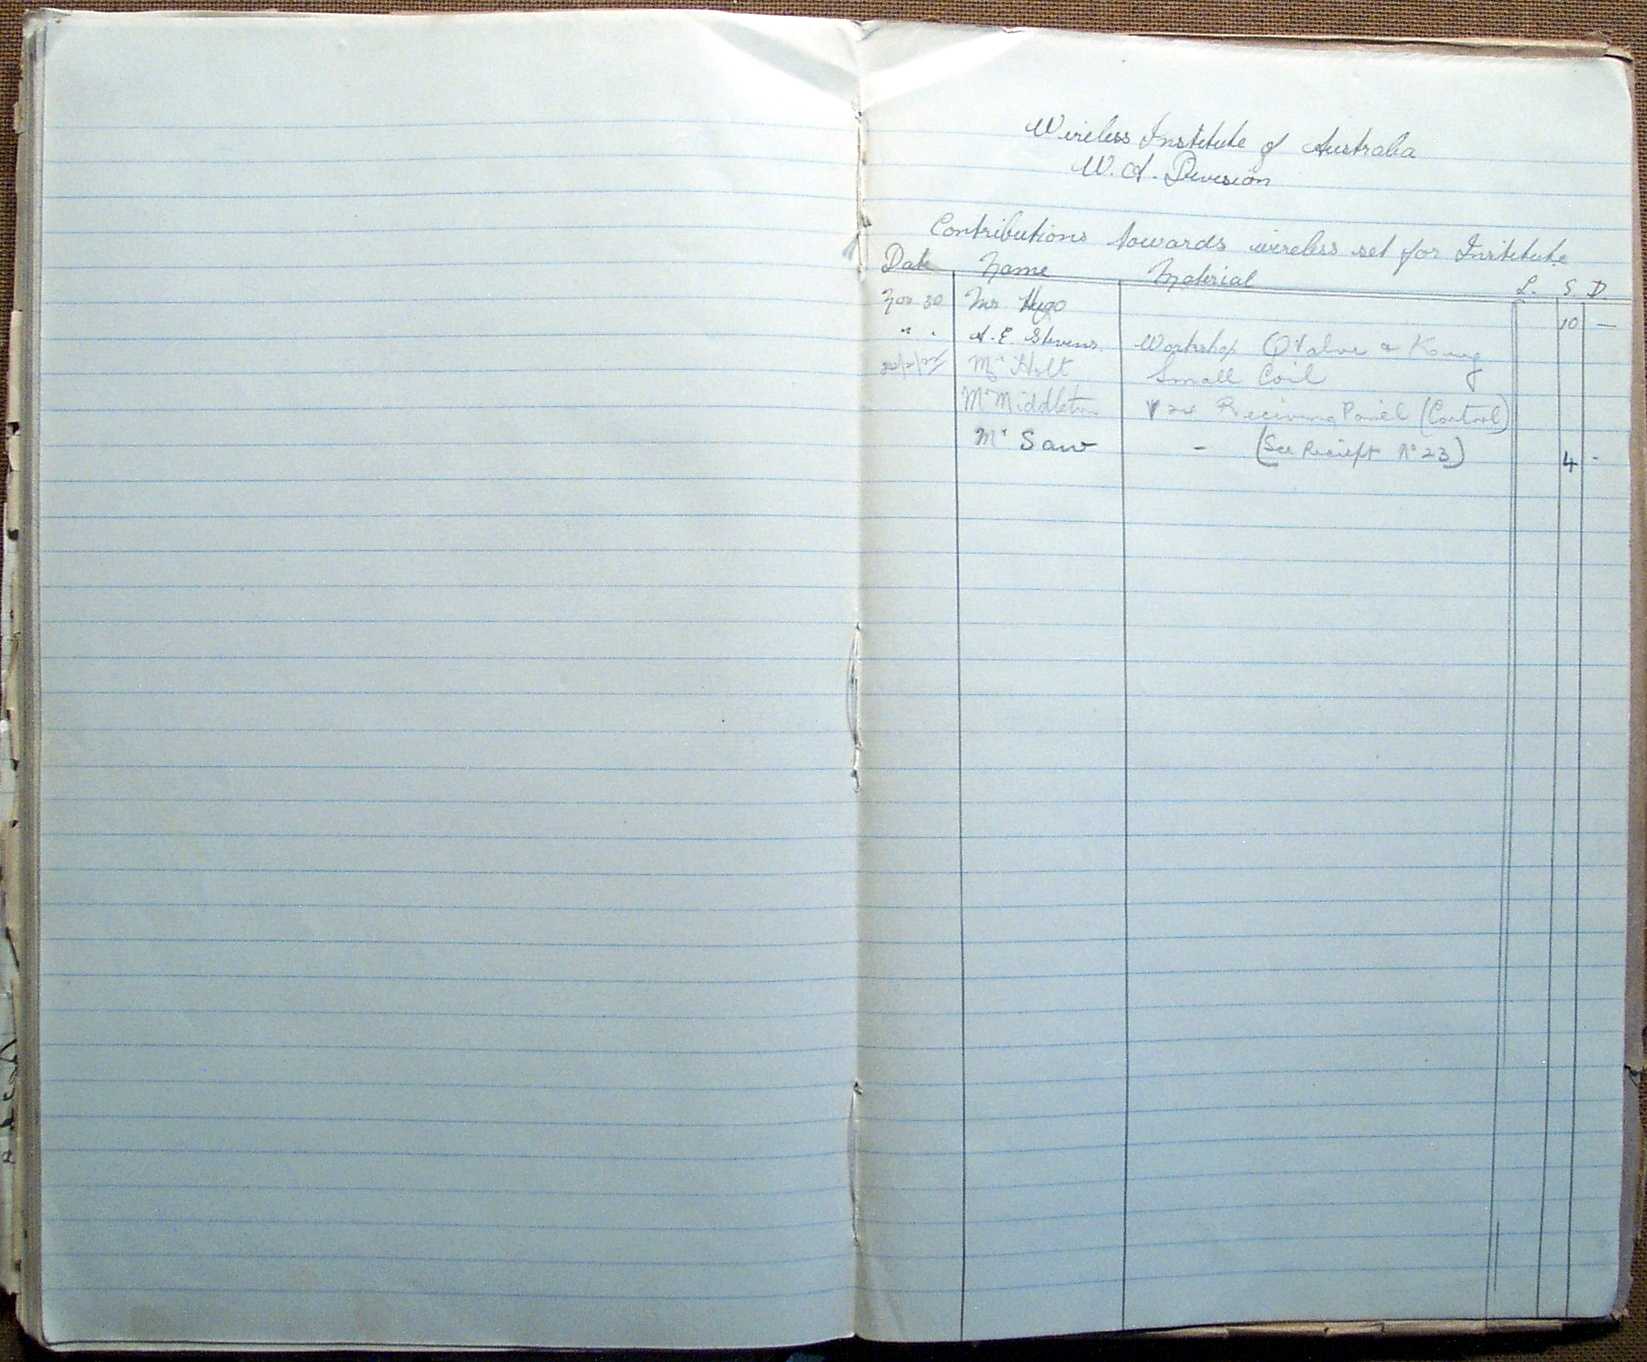 Wireless Institute of Australia
W. A. Division
Contributions towards wireless set for Institute
Date Name Material L. S. D.
Nov 30 Mr. Hugo 10 —
" " A. E. Stevens. Workshop Q Valve &
Mr Holt Small Coil
Mr Middleton Receiving Panel (Control)
Mr Saw - (See Reciept No 23) 4 -